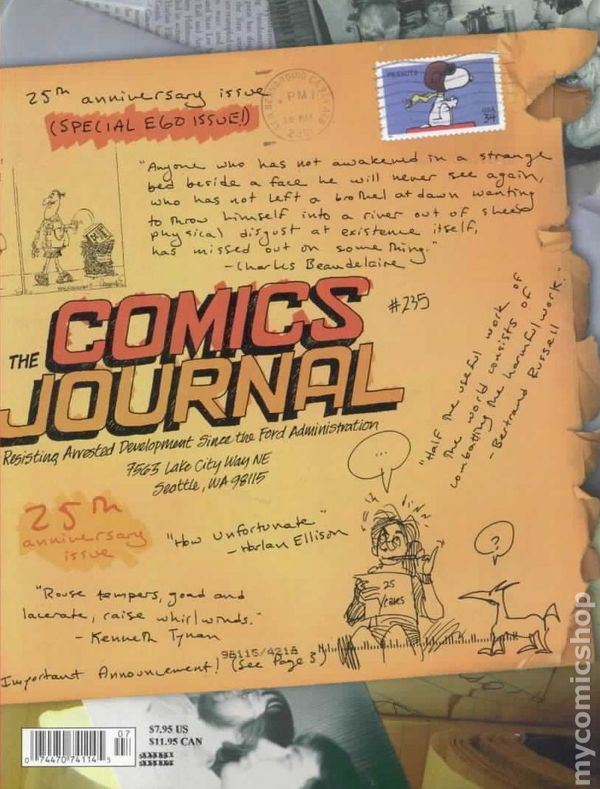 25th anniversary issue
(SPECIAL EGO ISSUE!)
PM
PEANUTS
USA
34
"Anyone who has not awakened in a strange
bed beside a face he will never see again,
who has not left a brothel at dawn wanting
to throw himself into a river out of sheer
physical disgust at existence itself,
has missed out on something."
-Charles Beaudelaire
#235
THE COMICS
JOURNAL
Resisting Arrested Development Since the Ford Administration
7563 Lake City Way NE
Seattle, WA 98115
"Half the useful work of
the world consists of
combatting the harmful work."
-Bertrand Russell
25th
anniversary
issue
"How Unfortunate"
-Harlan Ellison
...
?
25
YEARS
"Rouse tempers, goad and
lacerate, raise whirlwinds."
- Kenneth Tynan
98115/4218
Important Announcement! (see Page 3)
07
0 74470 74114 5
$7.95 US
$11.95 CAN
mycomicshop